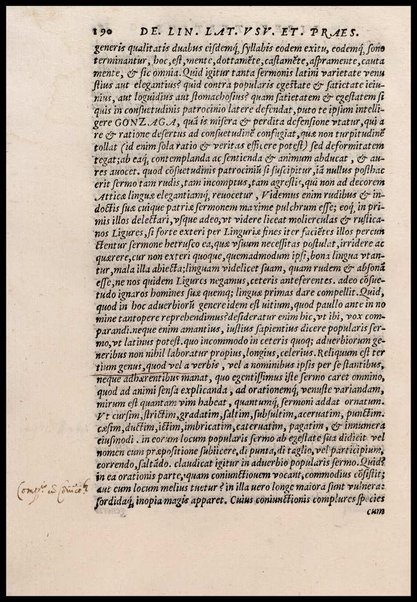 190 DE. LIN. LAT. VSV. ET. PRAES.
generis qualitatis duabus eisdemq́, syllabis eodem exitu, eodemq́, sono
terminantur, hoc, est, mente, dottamẽte, castamẽte, aspramente, cauta
mente, & sic omnia. Quid igitur tanta sermonis latini varietate venu
stius aut elegantius? quid contra popularis egestate & satietate ieiu-
nius, aut loguidius aut stomachosius? quam satietatem & egestatem si
quis in consuetudinis patrocinio latere defendat, puto te ipsum intelli-
gere GONZAGA, quã is misera & perdita defensione vtatur, qui a
re & ratione desertus ad consuetudinẽ confugiat, quæ non turpitudinẽ
tollat (id enim sola ratio & veritas efficere potest) sed deformitatem
tegat; ab eaq́, contemplanda ac sentienda & animum abducat, & au-
res auocet. quod cõsuetudinis patrociniũ si suscipitur, iã nullus posthac
erit sermo tam rudis, tam incomptus, tam agrestis, qui non ad decorem
Atticæ linguæ elegantiamq́, reuocetur. Videmus enim rudibus & in-
doctis suæ cuique patriæ sermonem maxime pulchrum esse; eoq́, in pri-
mis illos delectari, vsque adeo, vt videre liceat molierculas & rustica-
nos Ligures, si forte exteri per Linguriæ fines iter faciẽtes illos percun
ctentur sermone hetrusco ea, quæ vsuum necessitas postulat, irridere ac
quærere, cur non exteri quoque, quemadmodum ipsi, bona lingua vtan-
tur, mala illa abiecta; linguam videlicet suam, quam rudem & absonã
esse, ne nos quidem Ligures negamus, ceteris anteferentes. adeo cõsue-
tudo ignaros homines suæ quemq; linguæ primas dare compellit. Quid,
quod in hoc aduerbiorũ genere idem est uitium, quod paullo ante in no
mine tantopere reprehendimus? desideratur enim hic, vt ibi, vox com-
parandi. neque enim amantius, iustius sapientius dicere popularis ser-
mo, vt latinus potest. quo incommodo in ceteris quoq; aduerbiorum ge-
neribus non nihil laboratur propius, longius, celerius. Reliquum est ter
tium genus, quod vel a verbis, vel a nominibus ipsis per se stantibus,
neque adhærentibus manat, quo egentissimus iste sermo caret omnino,
quod ad animi sensa explicanda, ad orationemq́, venuste variandam,
mirum est quantam vim habeat, quantumq́, sermoni addat ornatum.
Vt cursim, strictim, gradatim, saltim, subsultim, aceruatim, punctim,
cæsim, ductim, ictim, imbricatim, cateruatim, pagatim, & innumera
eiusmodi. in eorum locum popularis sermo ab egestate sua didicit vel
nomen cum præpositione subijcere, di punta, di taglio, vel participium,
correndo, saltãdo. claudicat igitur in aduerbio popularis sermo. Quid?
in ea orationis parte, quam coniunctionem vocant, commodius cõsistit;
aut cum locum melius tuetur? in illa vero longe maiora sunt vulnera:
sordidaq́, inopia magis apparet. Cuius coniunctionis complures species
cum